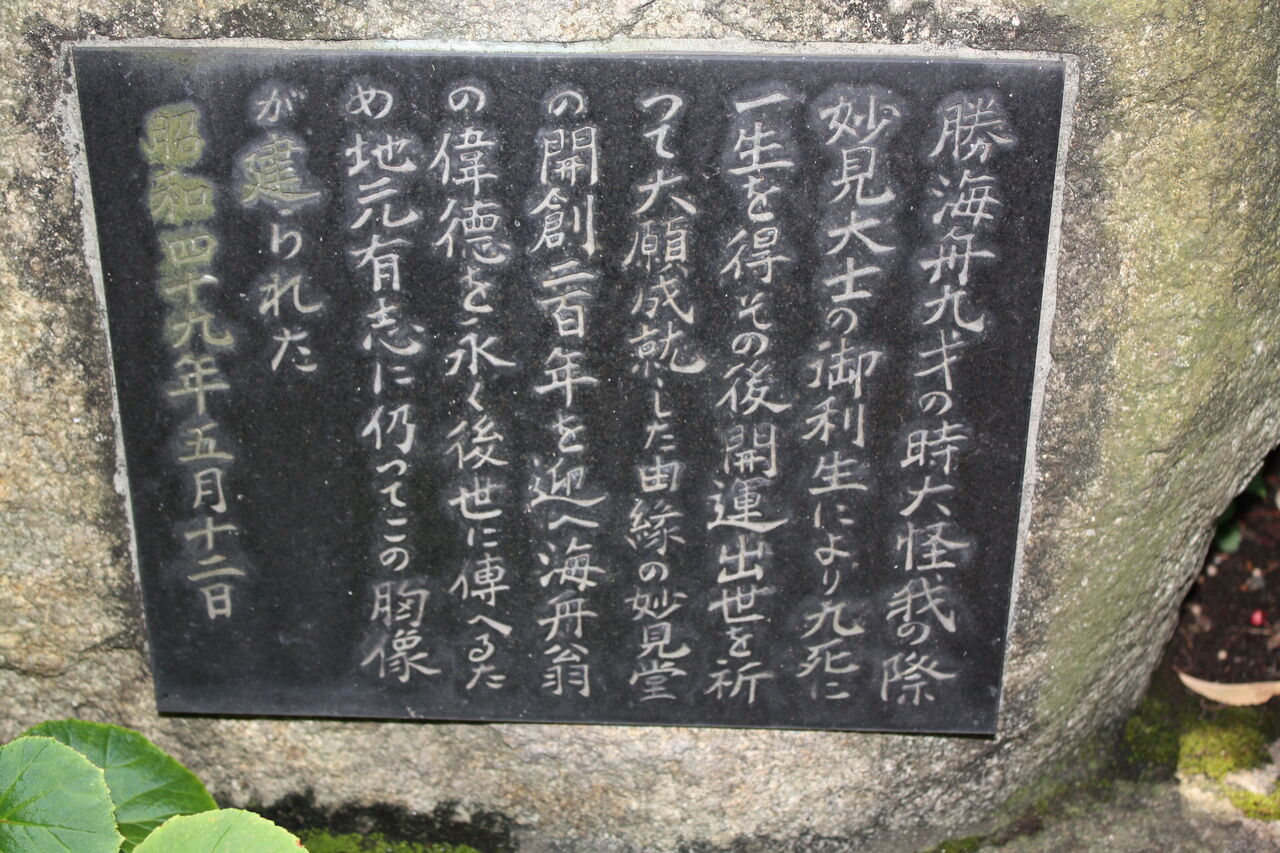 勝海舟九才の時大怪我の際
妙見大士の御利生により九死に
一生を得その後開運出世を祈
つて大願成就した由緣の妙見堂
の開創二百年を迎へ海舟翁
の偉徳を永く後世に傳へるた
め地元有志に仍つてこの胸像
が建られた
昭和四十九年五月十二日